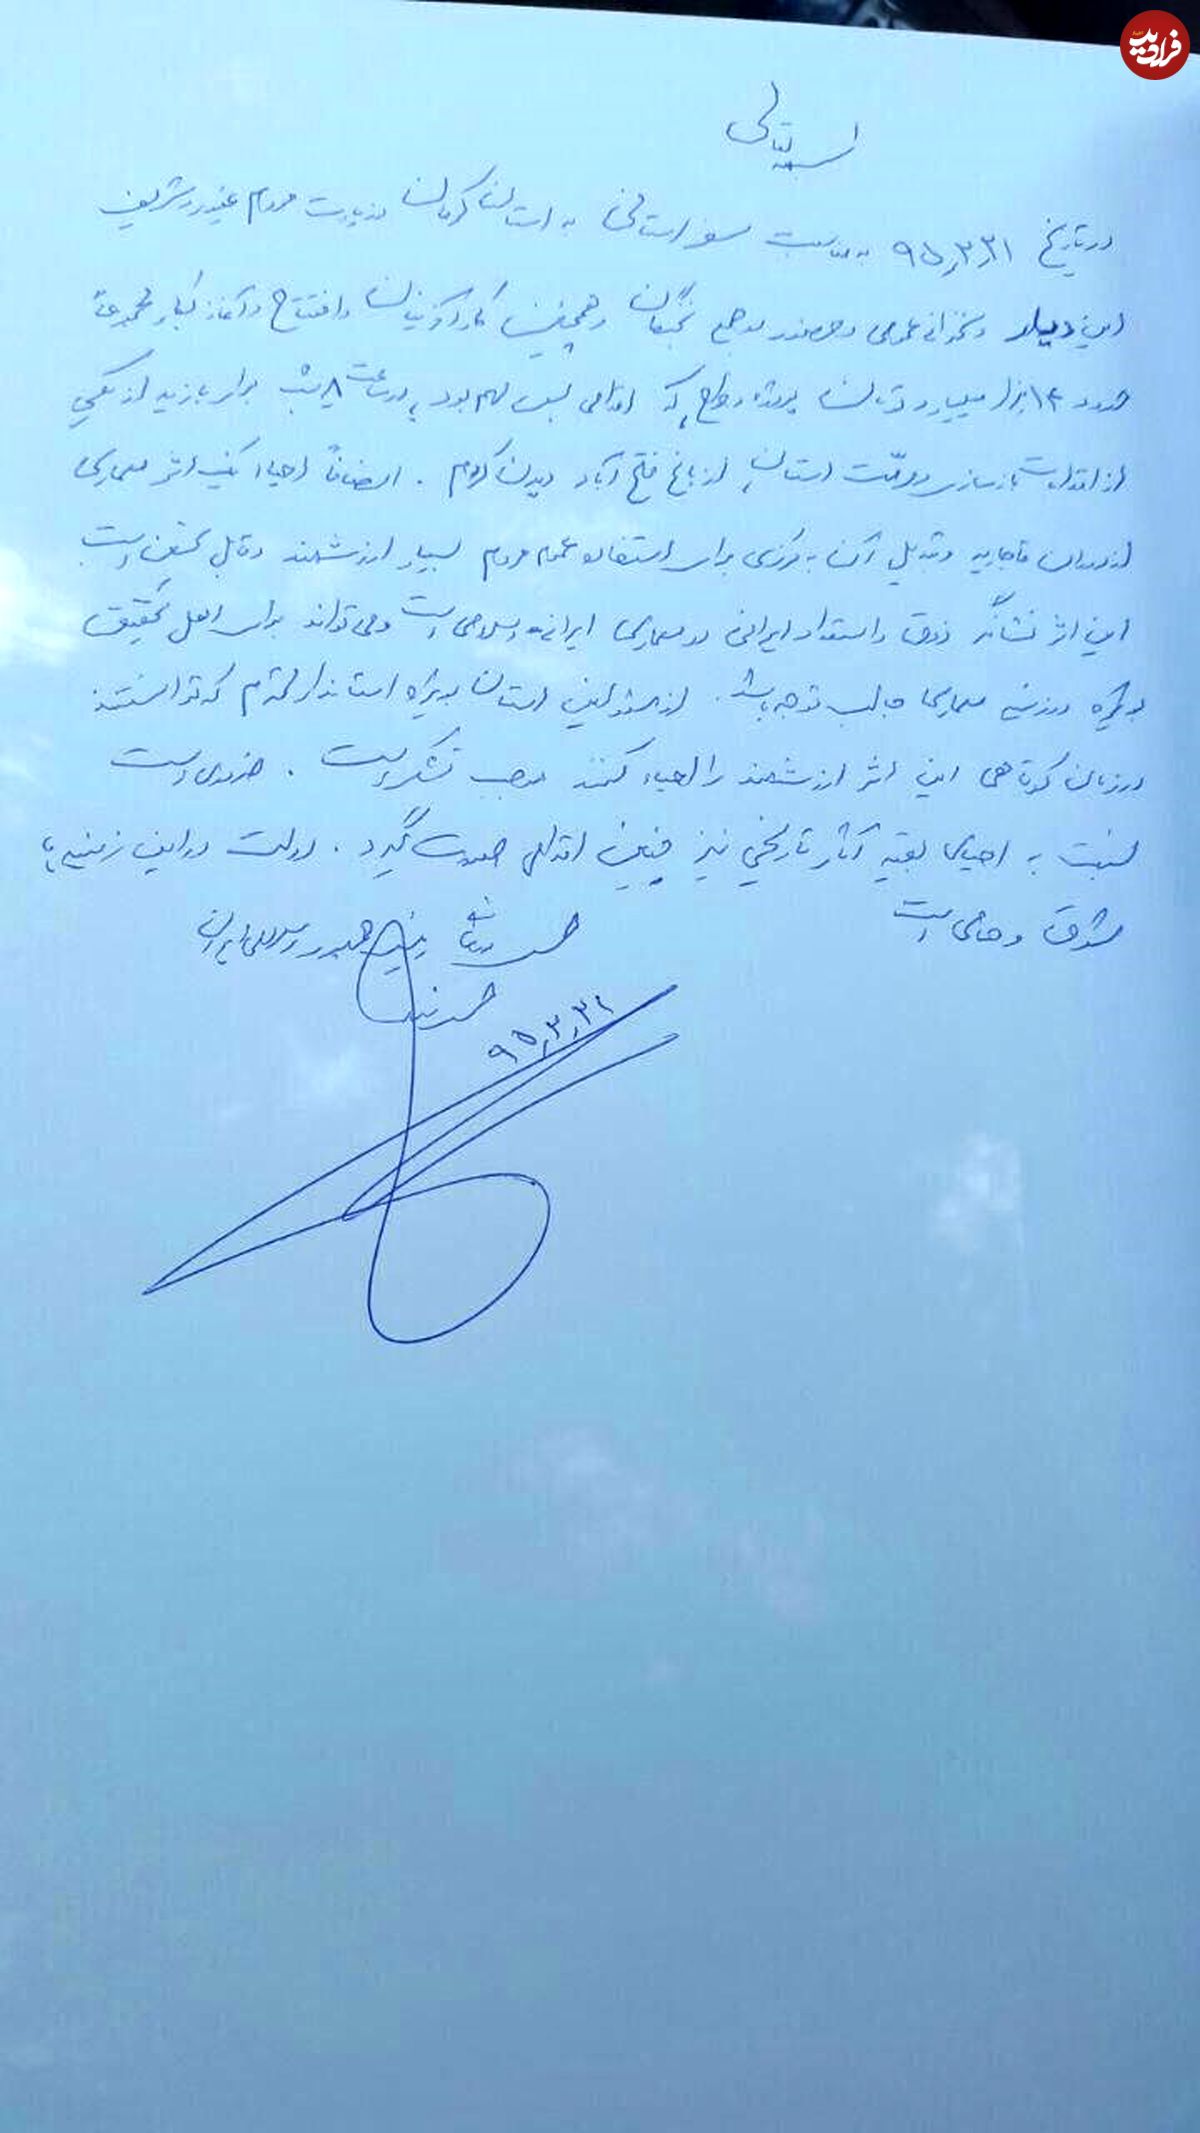 بسمه تعالی
در تاریخ ۹۵,۳,۳۱ به مناسبت سفر استانی به استان کرمان و زیارت مردم غیور و شریف
این دیار و سخنرانی عمومی و حضور در جمع نخبگان و همچنین کارآفرینان و افتتاح و آغاز بکار مجموعاً
حدود ۱۴ هزار میلیارد تومان پروژه و طرح که اقدامی بس مهم بود، در ساعت ۸ شب برای بازدید از یکی
از اقدامات بازسازی دولت استان، از باغ فتح آباد دیدن کردم. انصافاً احیاء یک اثر معماری
از دوران قاجاریه و تبدیل آن به مرکزی برای استفاده عموم مردم بسیار ارزشمند و قابل تحسین است
این اثر نشانگر ذوق و استعداد ایرانی در معماری ایرانی و اسلامی است و می‌تواند برای اهل تحقیق
بویژه در زمینه معماری جالب توجه باشد. از مسئولین استان بویژه استاندار محترم که توانستند
در زمان کوتاهی این اثر ارزشمند را احیاء کنند موجب تشکر است. ضروری است
نسبت به احیای بقیه آثار تاریخی نیز چنین اقدامی صورت گیرد. دولت در این زمینه‌ها
مشوق و حامی است
حسن روحانی رئیس جمهوری اسلامی ایران
۹۵,۳,۳۱
فرادید